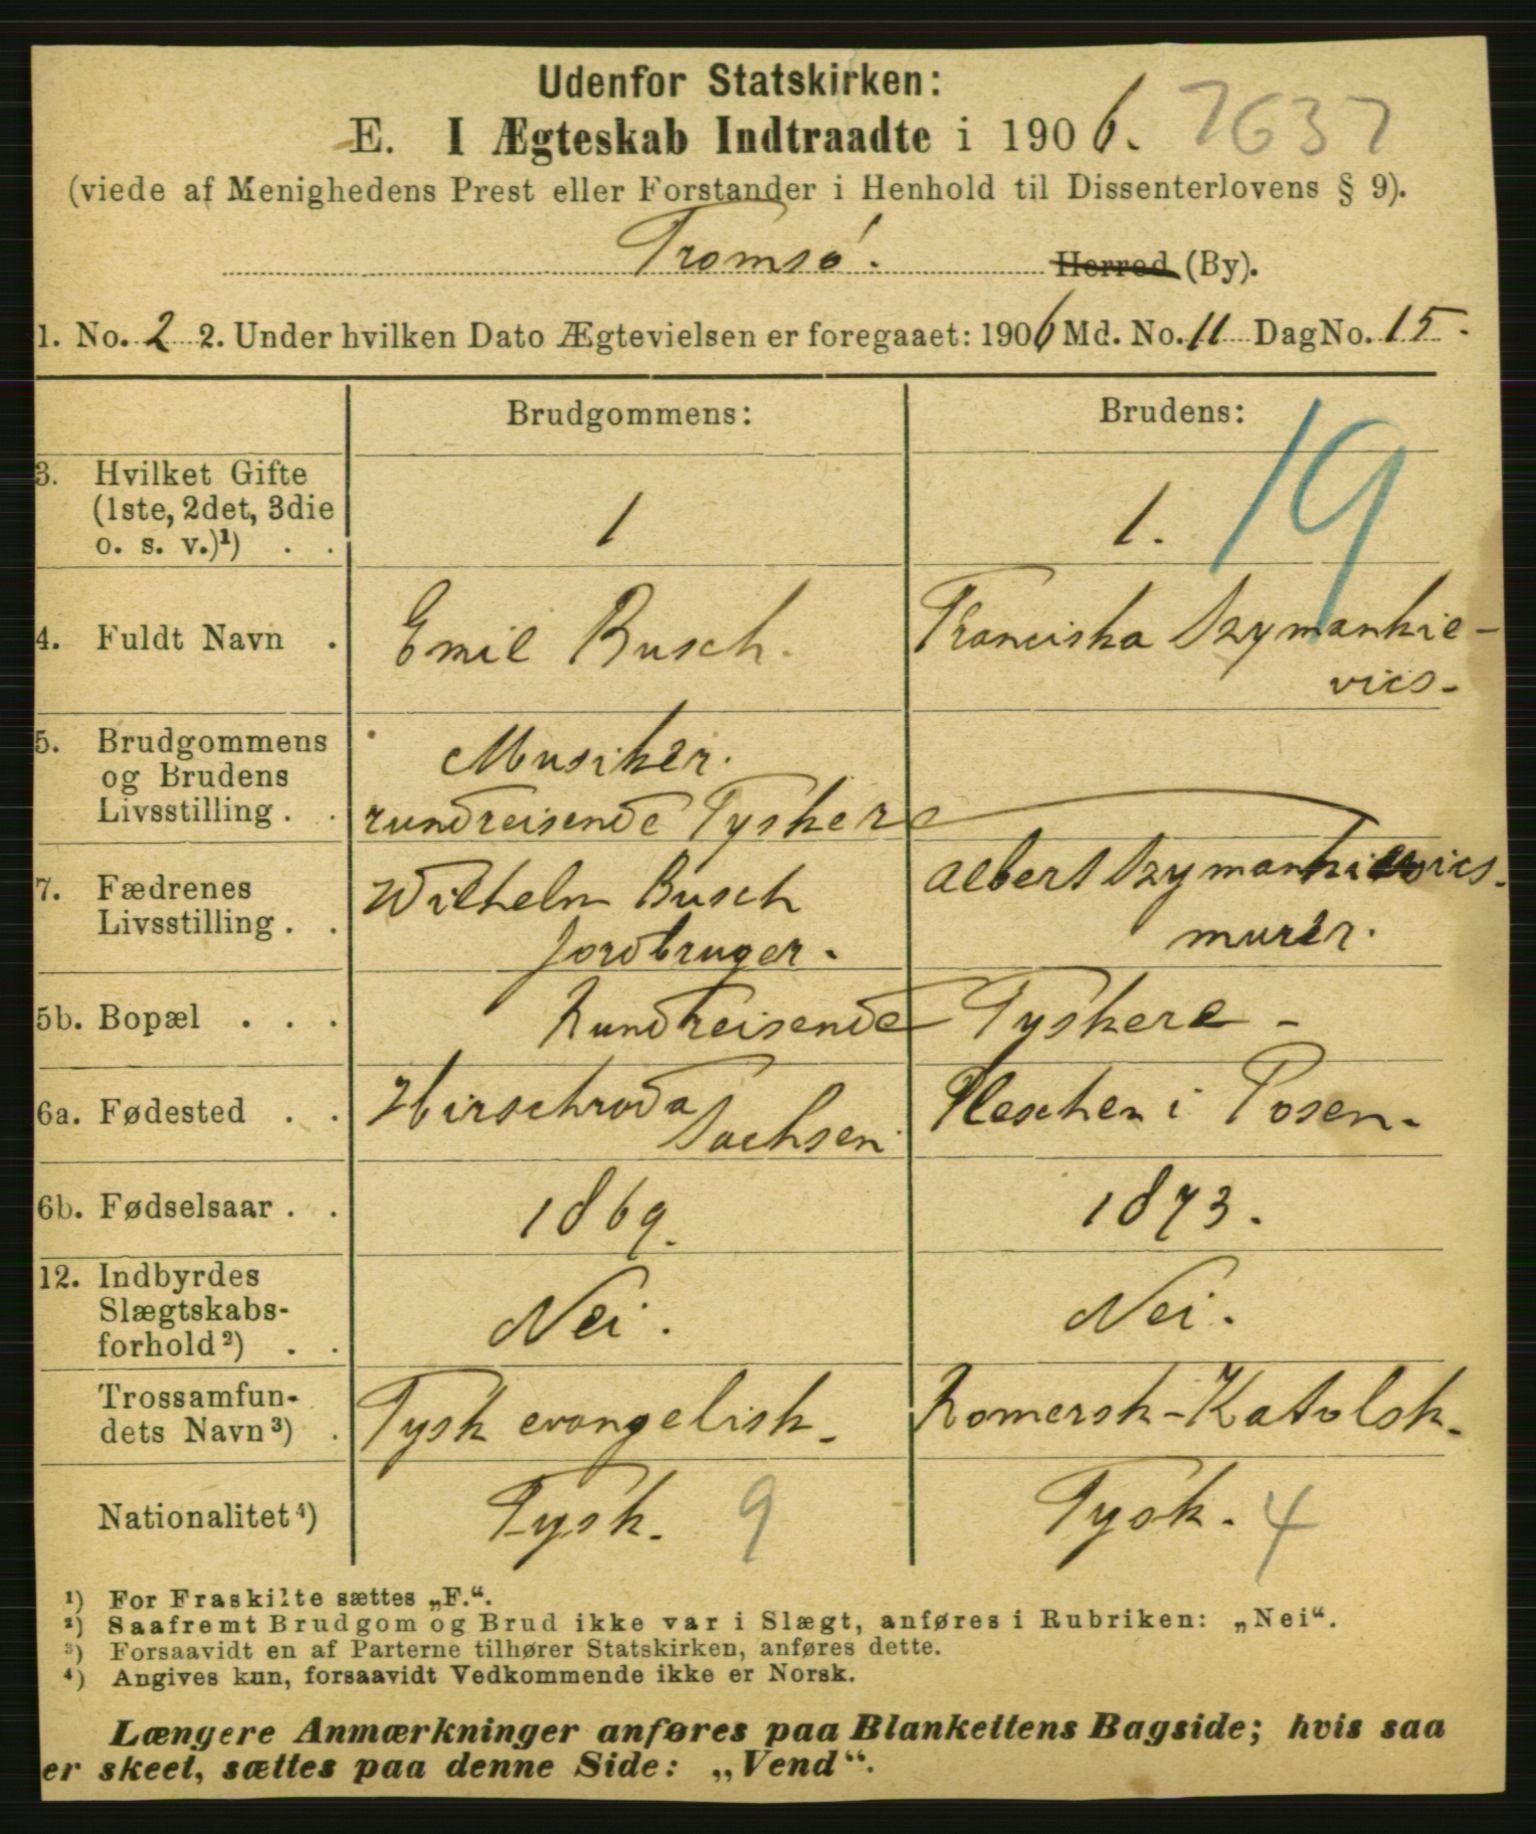 Udenfor Statskirken:
E. I Ægteskab Indtraadte i 1906. 7637
(viede af Menighedens Prest eller Forstander i Henhold til Dissenterlovens § 9).
Tromsø. Herred (By).
1. No. 2 2. Under hvilken Dato Ægtevielsen er foregaaet: 1906 Md. No. 11 Dag No. 15.
Brudgommens: Brudens:
19
3. Hvilket Gifte
(1ste, 2det, 3die
o. s. v.)¹) . . 1 1.
4. Fuldt Navn . Emil Busch. Franciska Szymankie-
vics.
5. Brudgommens
og Brudens
Livsstilling . . Musiker.
rundreisende Tyskere
7. Fædrenes
Livsstilling . . Wilhelm Busch Albert Szymankiewics.
Jordbruger. murer.
5b. Bopæl . . . Rundreisende Tyskere -
6a. Fødested . . Hirschroda Pleschen i Posen.
Sachsen.
6b. Fødselsaar . . 1869. 1873.
12. Indbyrdes
Slægtskabs-
forhold²) . . Nei. Nei.
Trossamfun-
dets Navn³) . Tysk evangelisk. Romersk-Katolsk.
Nationalitet⁴) Tysk. 9 Tysk. 4
¹) For Fraskilte sættes „F.“.
²) Saafremt Brudgom og Brud ikke var i Slægt, anføres i Rubriken: „Nei“.
³) Forsaavidt en af Parterne tilhører Statskirken, anføres dette.
⁴) Angives kun, forsaavidt Vedkommende ikke er Norsk.
Længere Anmærkninger anføres paa Blankettens Bagside; hvis saa
er skeet, sættes paa denne Side: „Vend“.